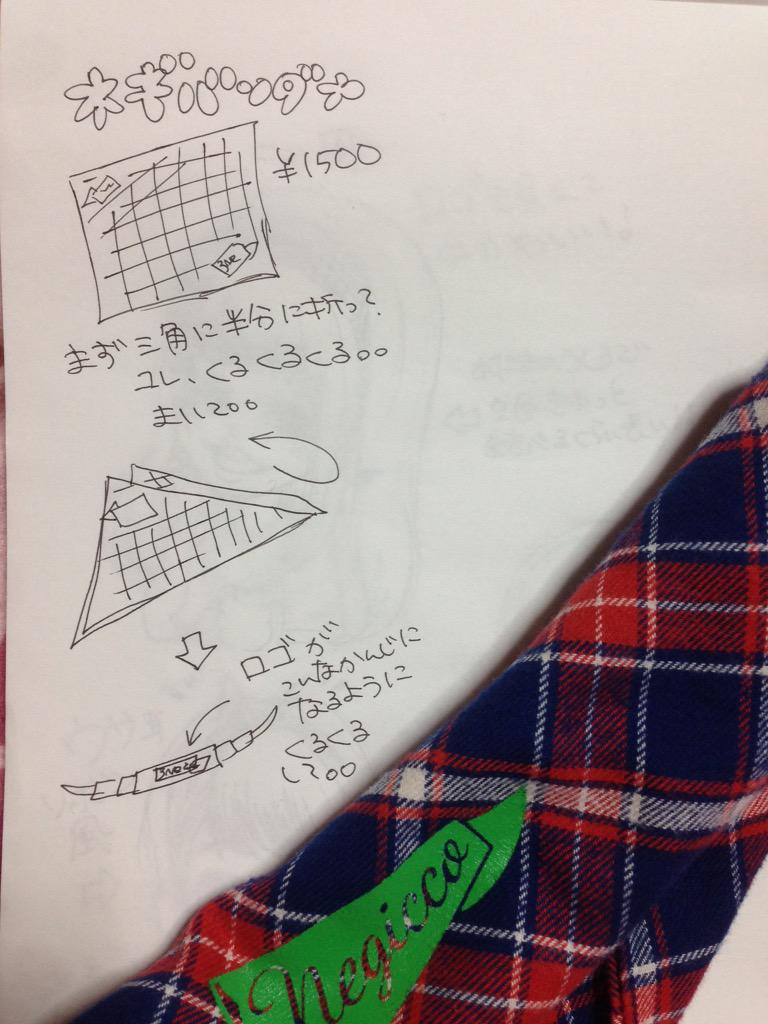 ネギバンダナ
¥1500
まず三角に半分に折って、
コレ、くるくるくる○○
まいて○○
ロゴが
こんなかんじに
なるように
くるくる
して○○
Negicco